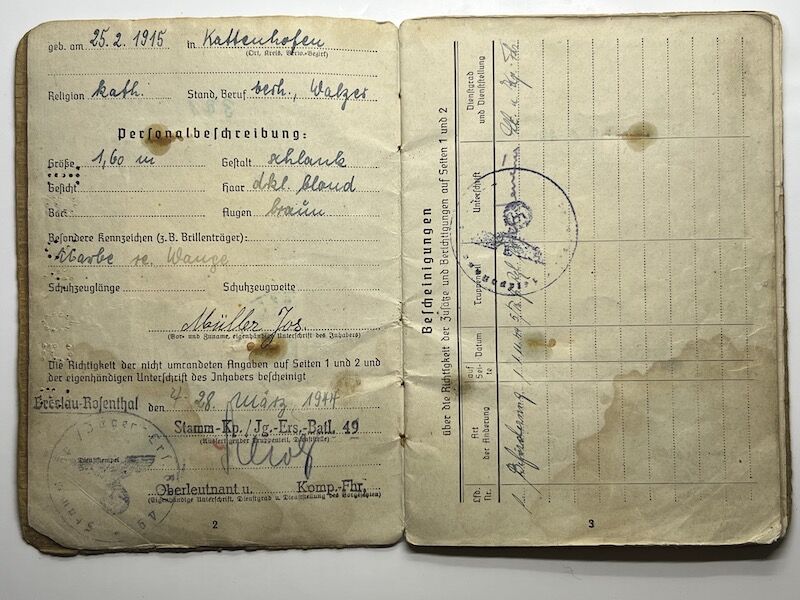 geb. am 25. 2. 1915 in Kattenhofen
(Ort, Kreis, Verw.-Bezirk)
Religion kath. Stand, Beruf verh., Walzer
Personalbeschreibung:
Größe 1,60 m Gestalt schlank
Gesicht Haar dkl. blond
Bart Augen braun
Besondere Kennzeichen (z. B. Brillenträger):
Narbe re. Wange
Schuhzeuglänge Schuhzeugweite
Müller Jos.
(Vor- und Zuname, eigenhändige Unterschrift des Inhabers)
Die Richtigkeit der nicht umrandeten Angaben auf Seiten 1 und 2 und
der eigenhändigen Unterschrift des Inhabers bescheinigt
Breslau-Rosenthal den 28. März 1944
Stamm-Kp./Jg.-Ers.-Batl. 49
(Ausfertigender Truppenteil, Dienststelle)
Dienststempel
Oberleutnant u. Komp.-Fhr.
(Eigenhändige Unterschrift, Dienstgrad u. Dienststellung des Vorgesetzten)
2
Bescheinigungen
über die Richtigkeit der Zusätze und Berichtigungen auf Seiten 1 und 2
Lfd. Nr.
Art der Änderung
auf Seite
Datum
Truppenteil
Unterschrift
Dienstgrad und Dienststellung
Beförderung
3